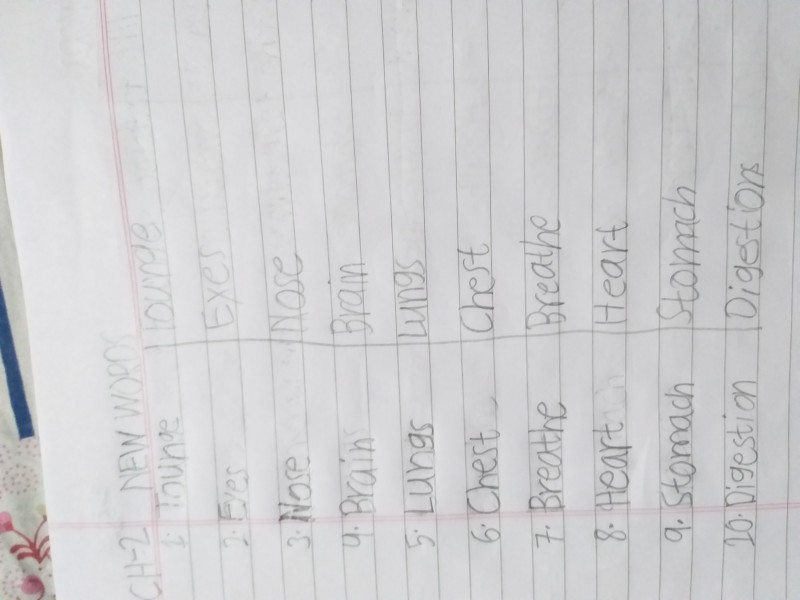 CH-2 NEW WORDS
1. Tounge Tounge
2. Eyes Eyes
3. Nose Nose
4. Brain Brain
5. Lungs Lungs
6. Chest Chest
7. Breathe Breathe
8. Heart Heart
9. Stomach Stomach
10. Digestion Digestions